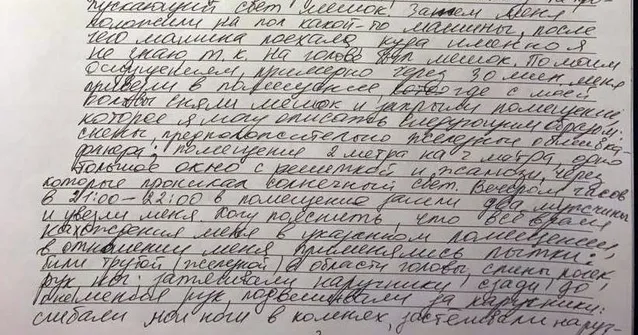 пускающий свет мешок. Затем меня
положили на пол какой-то машины, после
чего машина поехала, куда именно я
не знаю т.к. на голове был мешок. По моим
ощущениям, примерно через 30 мин меня
привели в помещение где с моей
головы сняли мешок и закрыли помещение,
которое я могу описать следующим образом:
стены, предположительно железные
помещение 2 метра на 2 метра, одно
большое окно с решеткой и жалюзи, через
которые проникал солнечный свет. Вечером часов
в 21:00-22:00 в помещение зашли два мужчины
и увезли меня. Могу пояснить что всё время
нахождения меня в указанном помещении,
в отношении меня применялись пытки:
били трубой железной, в области головы, спины,
рук, ног; затягивали наручники сзади до
онемения рук, подвешивали за наручники;
сгибали мои ноги в коленях, застегивали наруч-